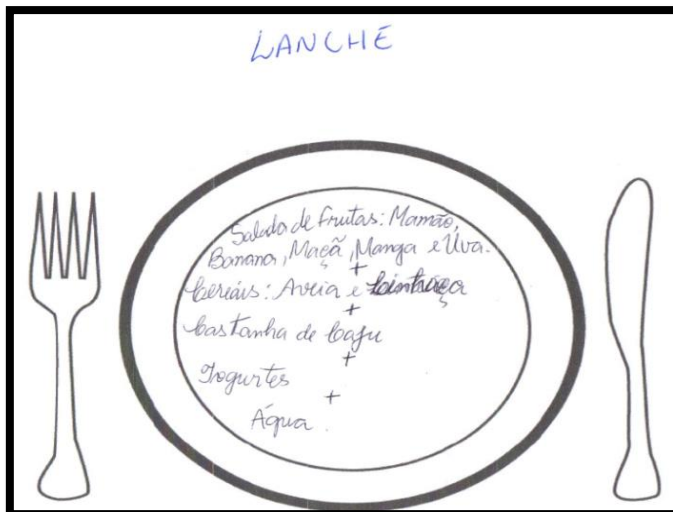 LANCHE
Salada de Frutas: Mamão,
Banana, Maçã, Manga e Uva.
+
Cereáis: Aveia e Linhaça
+
Castanha de Caju
+
Iogurtes
+
Água.